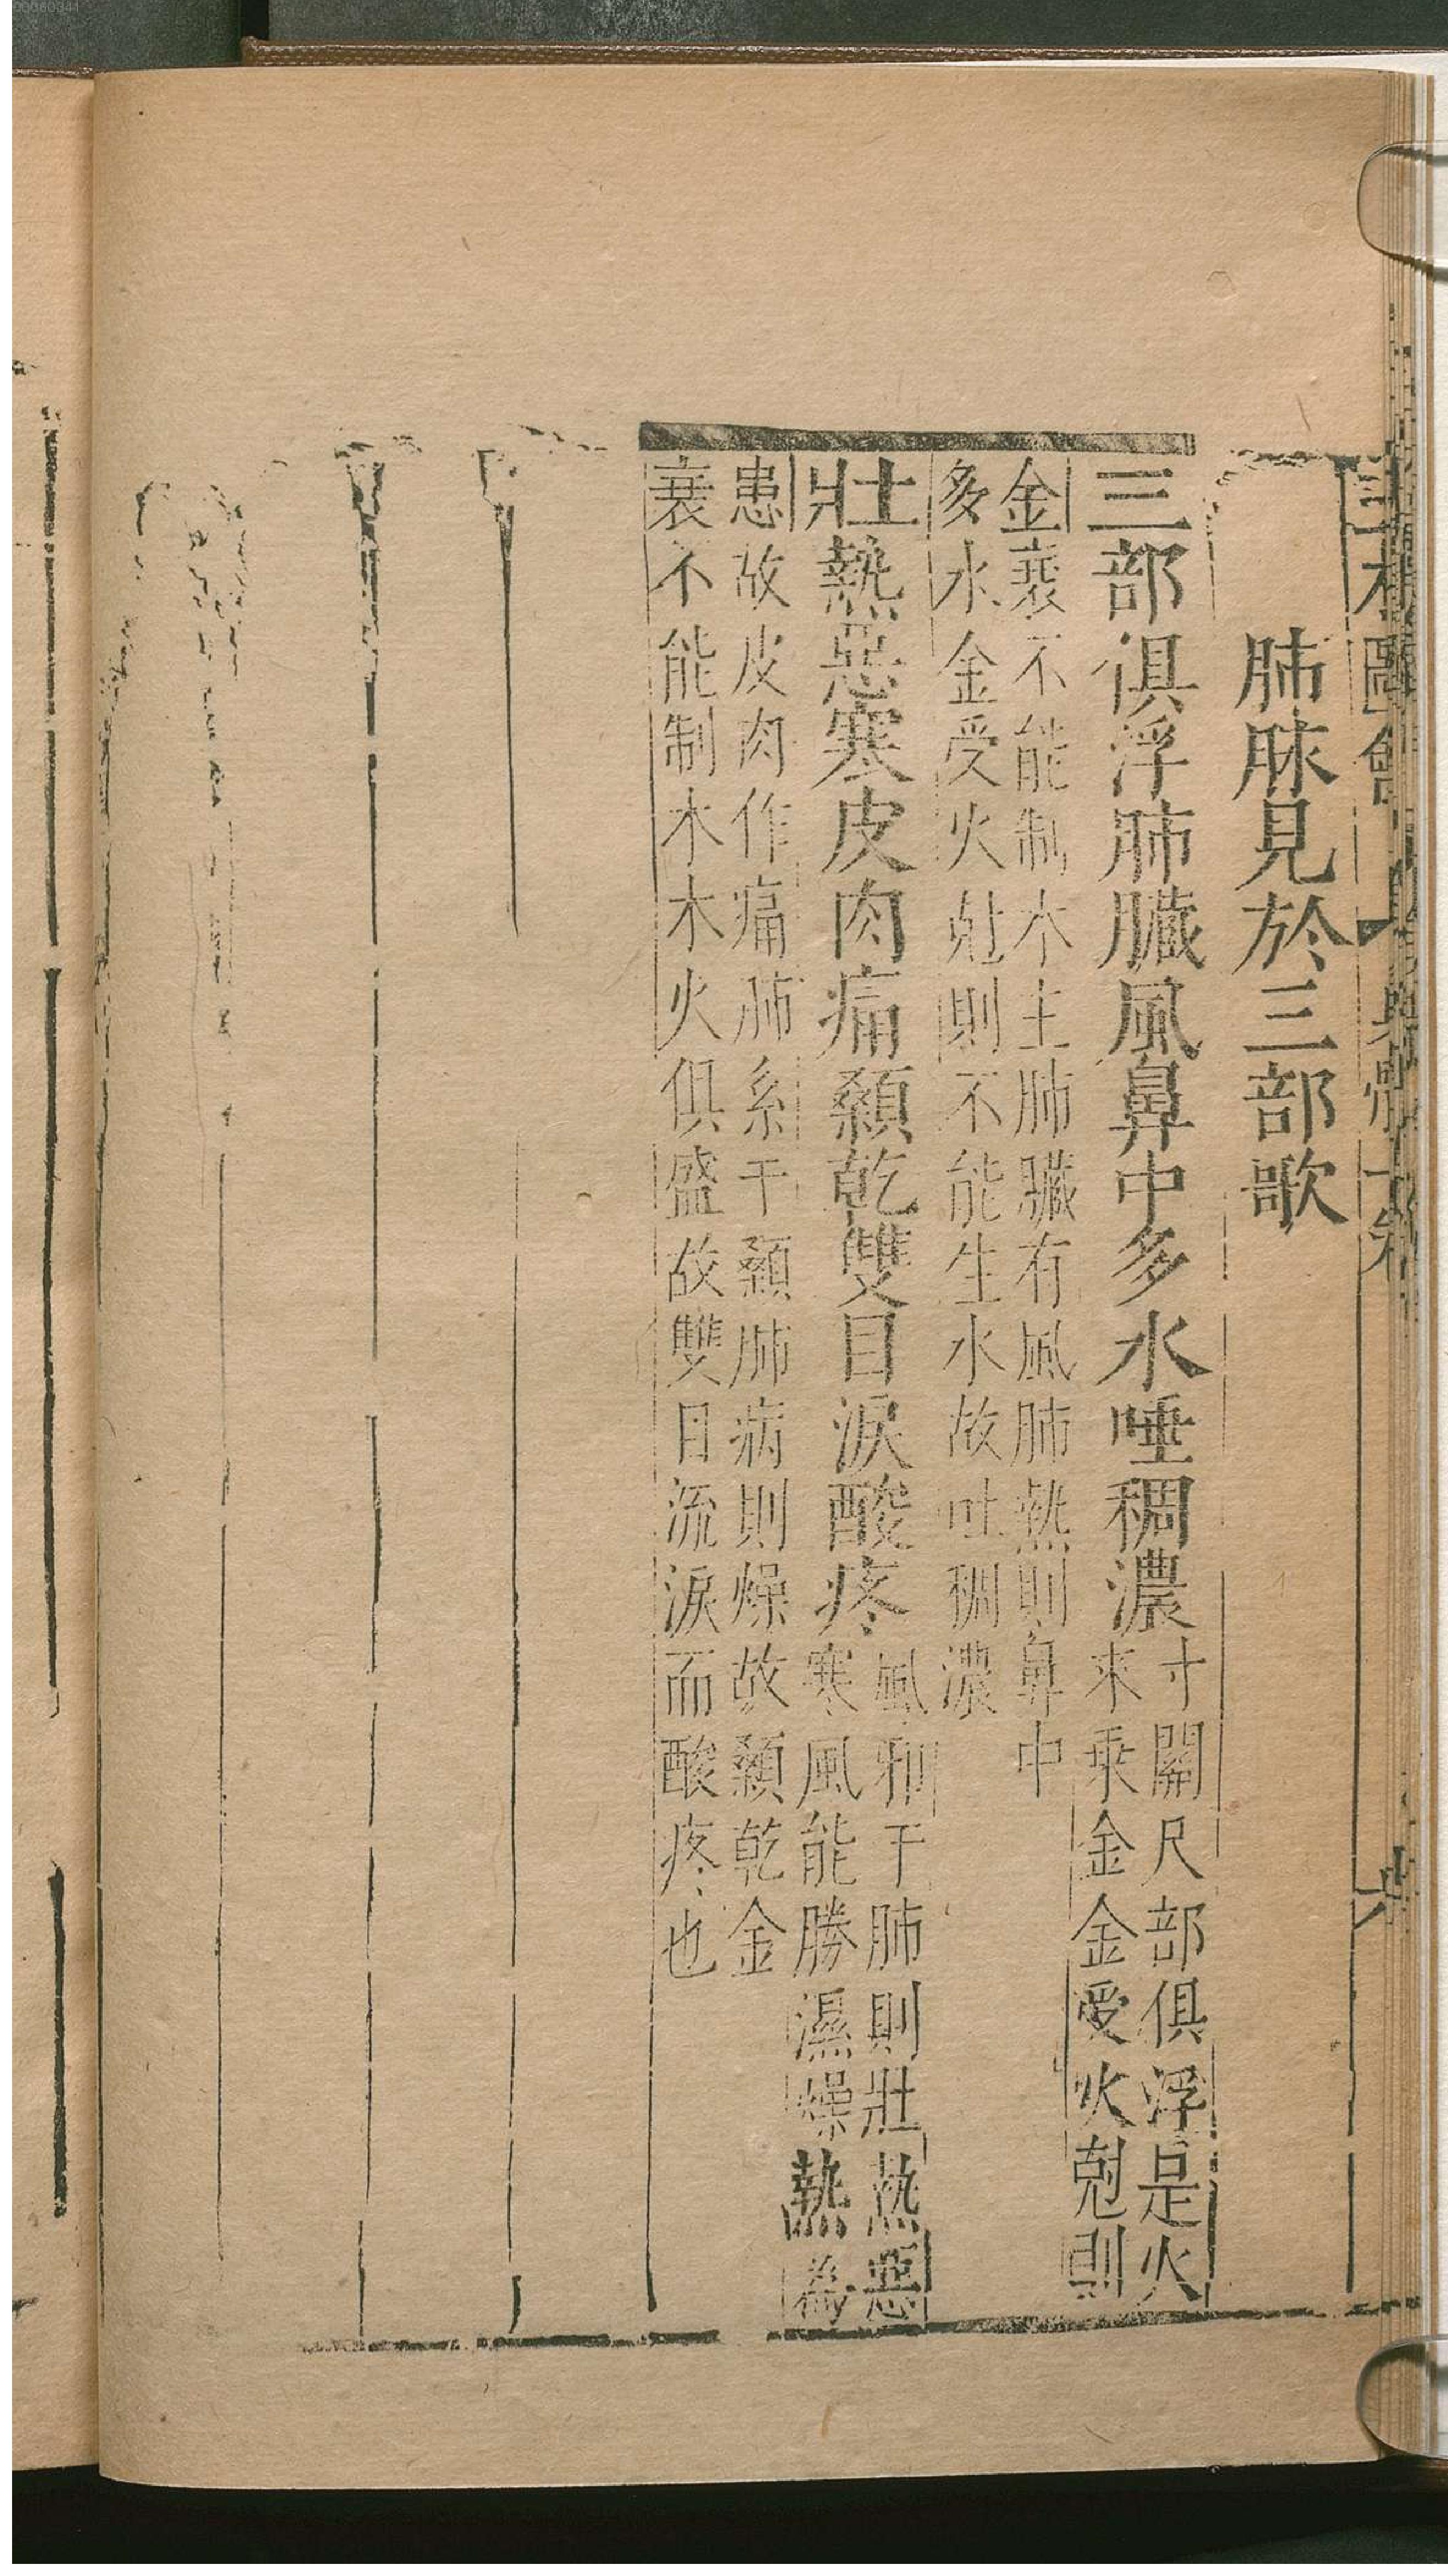 00080341
三才圖會
身體七卷
六
肺脉見於三部歌
三部俱浮肺臟風鼻中多水唾稠濃
寸關尺部俱浮是火
來乘金金受火剋則
金衰不能制木主肺臟有風肺熱則鼻中
多水金受火尅則不能生水故吐稠濃
壯熱惡寒皮肉痛顙乾雙目淚酸疼
風邪干肺則壯熱惡
寒風能勝濕燥熱為
患故皮肉作痛肺系干顙肺病則燥故顙乾金
衰不能制木木火俱盛故雙目流淚而酸疼也